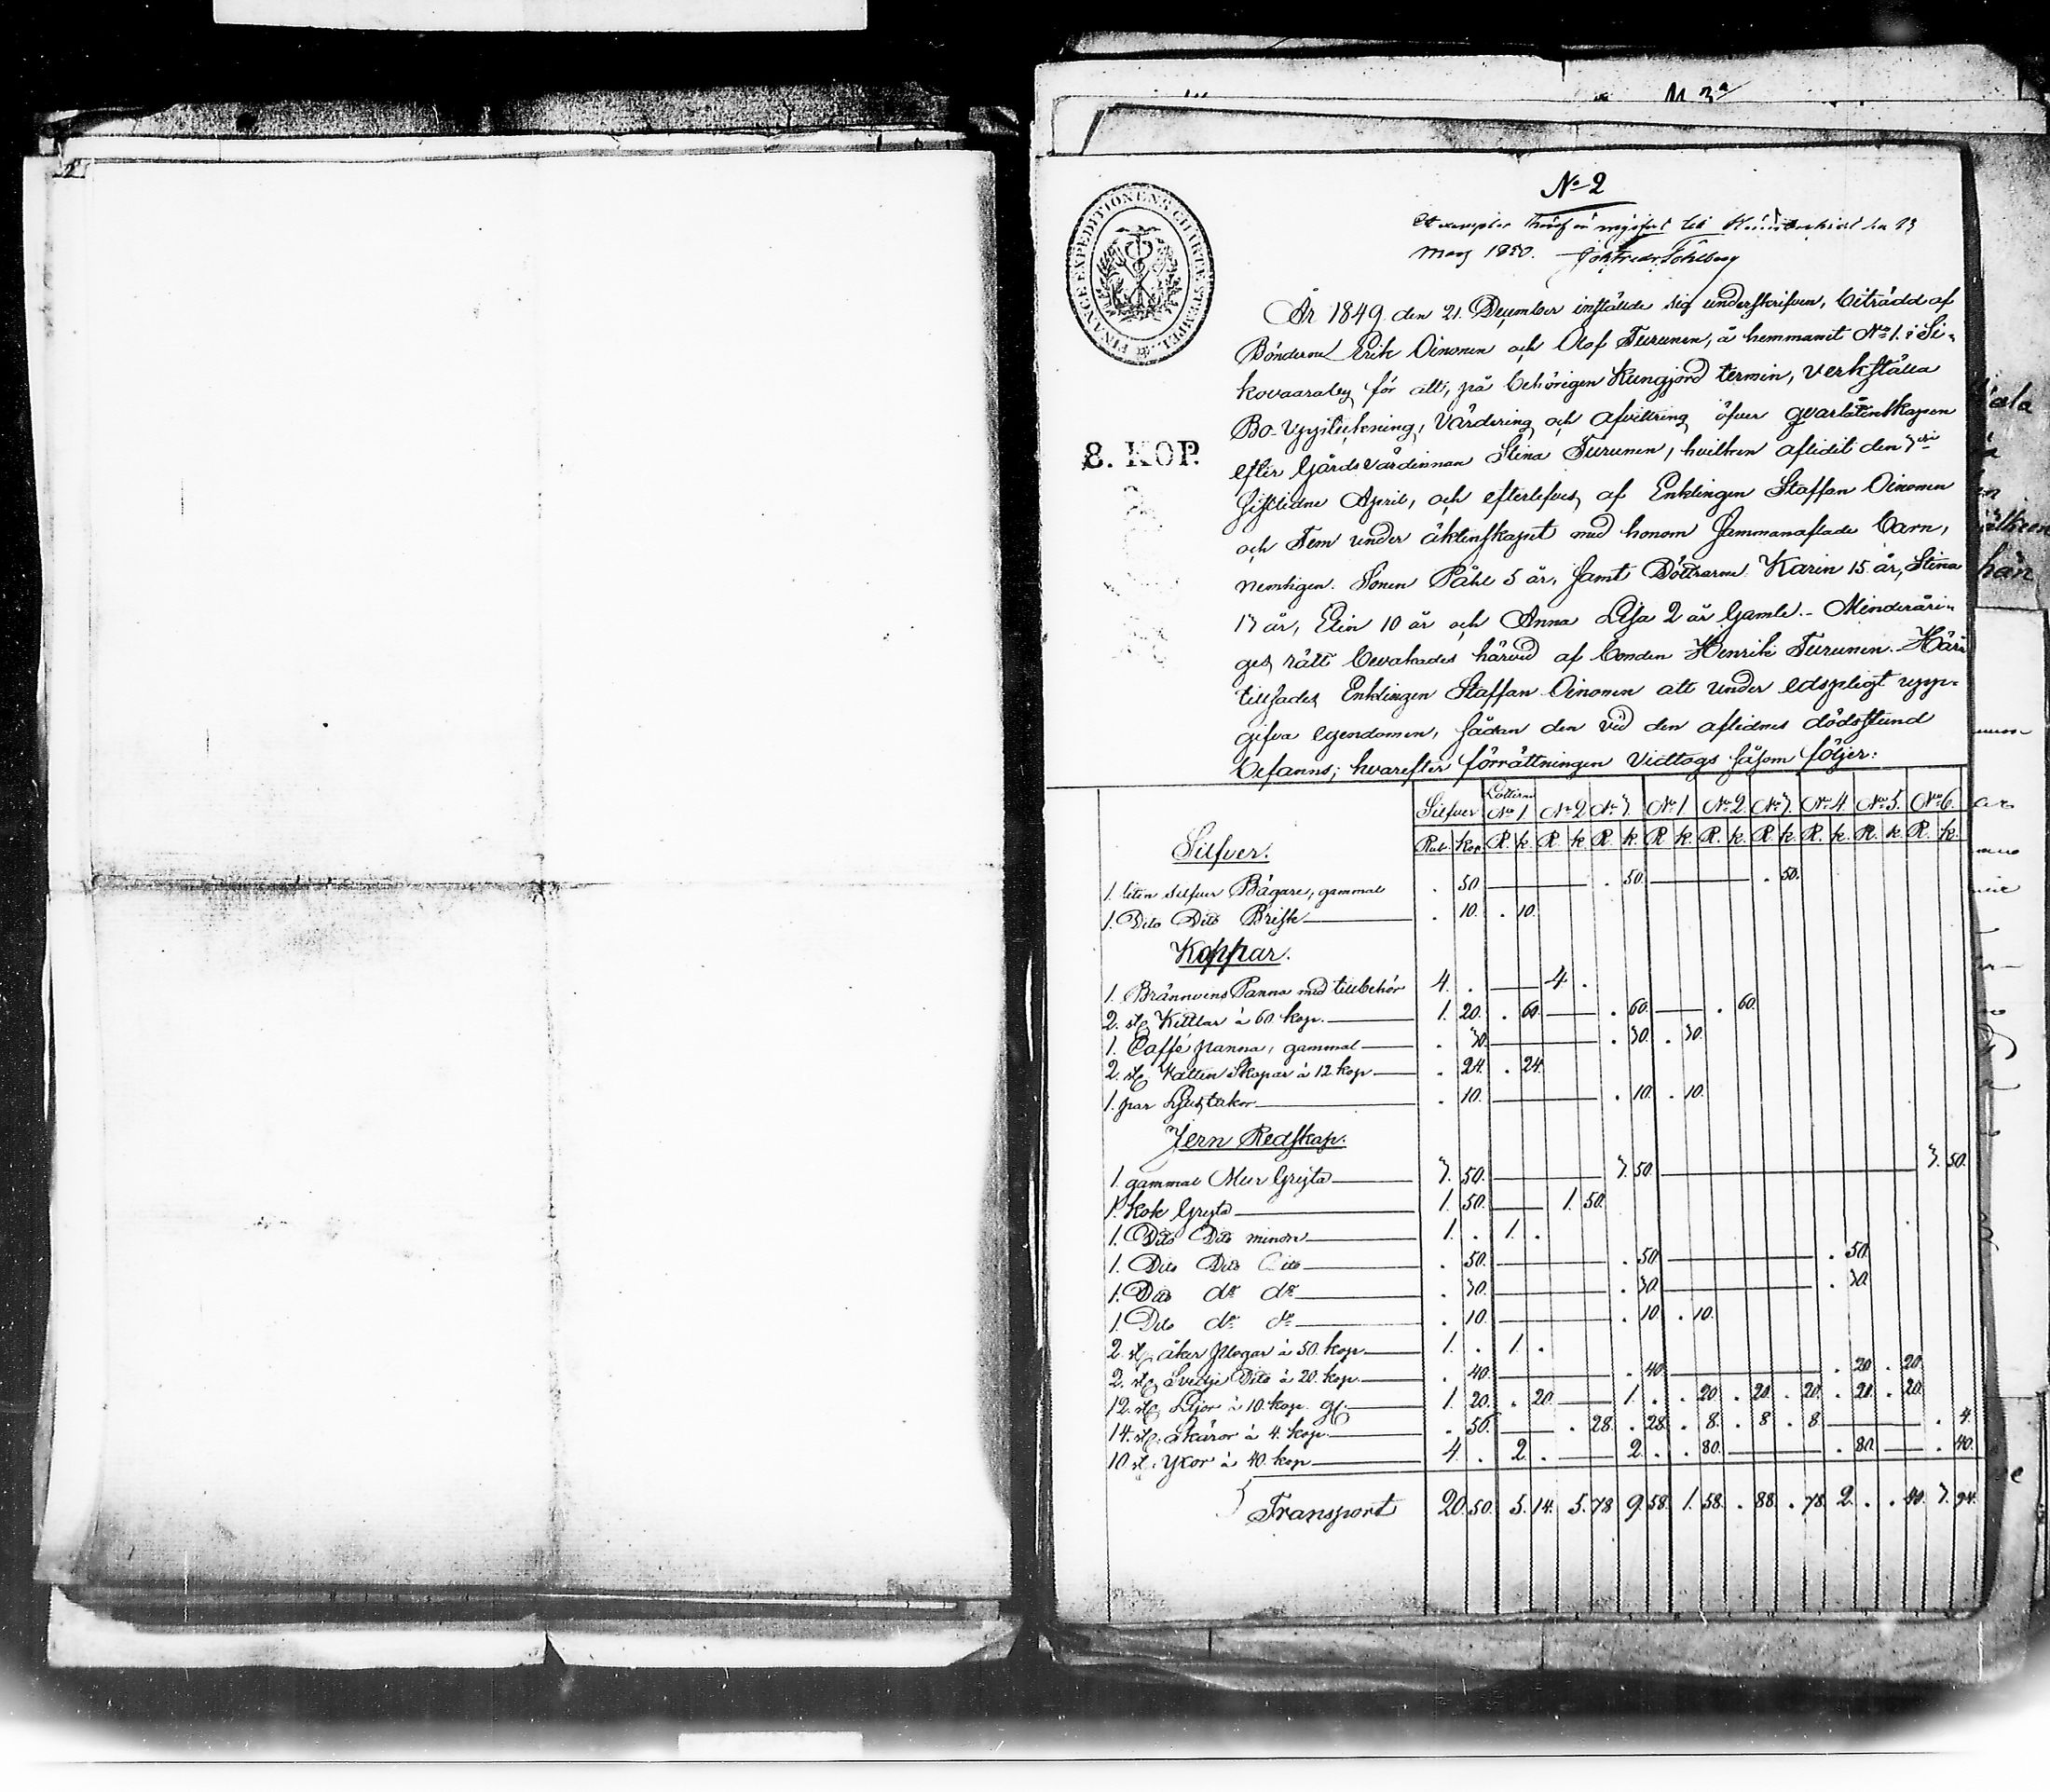 No 2
Ett exemplar häraf är ingifvet till Härads den 13
Mars 1850. Joh Fredr Fohlberg
FINANCE EXPEDITIONENS CHARTÆ STEMPEL.
8. KOP.
År 1849 den 21. December instälde sig underskrifven, biträdd af
Bönderne Erik Oinonen och Olof Turunen, å hemmanet No 1. i Si-
kovaara by för att, på behörigen kungjord termin, verkställa
Bo-Uppteckning, Värdering och afvittring öfver qvarlåtenskapen
efter Gårdsvärdinnan Stina Turunen, hvilken aflidit den 3die
sistledne April, och efterlefves af Enklingen Staffan Oinonen
och Fem under äktenskapet med honom sammanaflade barn,
nemligen. Sonen Påhl 5 år, samt Döttrarne Karin 15 år, Stina
13 år, Elin 10 år och Anna Lisa 2 år gamle.- Minderåri-
ges rätt bevakades härvid af bonden Henrik Turunen. Här
tillsades Enklingen Staffan Oinonen att under edspligt upp-
gifva egendomen, sådan den vid den aflidnes dödsstund
befanns; hvarefter förrättningen vidtogs såsom följer:
Silfver Lotterne No 1 No 2 No 3. No 1 No 2. No 3. No 4. No 5. No 6.
Silfver. Rub. Kop R. k. R. k. R. k. R k. R. k. R. k. R. k. R. k. R. k.
1. liten silfver Bägare, gammal . 50 . 50. . 50.
1. Dito Dito Brisk . 10. . 10.
Koppar.
1. Brännvins Panna med tillbehör 4. . 4. .
2. st. Kittlar à 60 kop. 1. 20. . 60. . 60. . 60.
1. Caffé panna, gammal . 30. . 30. . 30.
2. st. Vatten Skopar à 12 kop . 24. . 24.
1. par Ljusstakor . 10. . 10. . 10.
Jern Redskap.
1. gammal Mur Gryta 3. 50. 3. 50 3. 50.
1. kok Gryta 1. 50. 1. 50.
1. Dito Dito minore 1. . 1. .
1. Dito Dito Dito . 50. . 50 . 50
1. Dito do do . 30. . 30. . 30.
1. Dito do do . 10. . 10. . 10.
2. st. åker plogar à 50. kop 1. . 1. .
2. st. Svedje Dito à 20. kop. . 40. . 40. . 20. . 20.
12. st. Lijor à 10. kop. 1. 20. . 20. 1. . . 20. . 20. . 20. . 20. . 20.
14. st. skäror à 4. kop. . 50. . 28. . 28. . 8. . 8. . 8. . 4.
10 st. yxor à 40. kop 4. . 2. . 2. . . 80. . 80. . 40.
Transport 20. 50. 5. 14. 5. 78 9. 58. 1. 58. . 88. . 78. 2. . . 40. 3. 94.